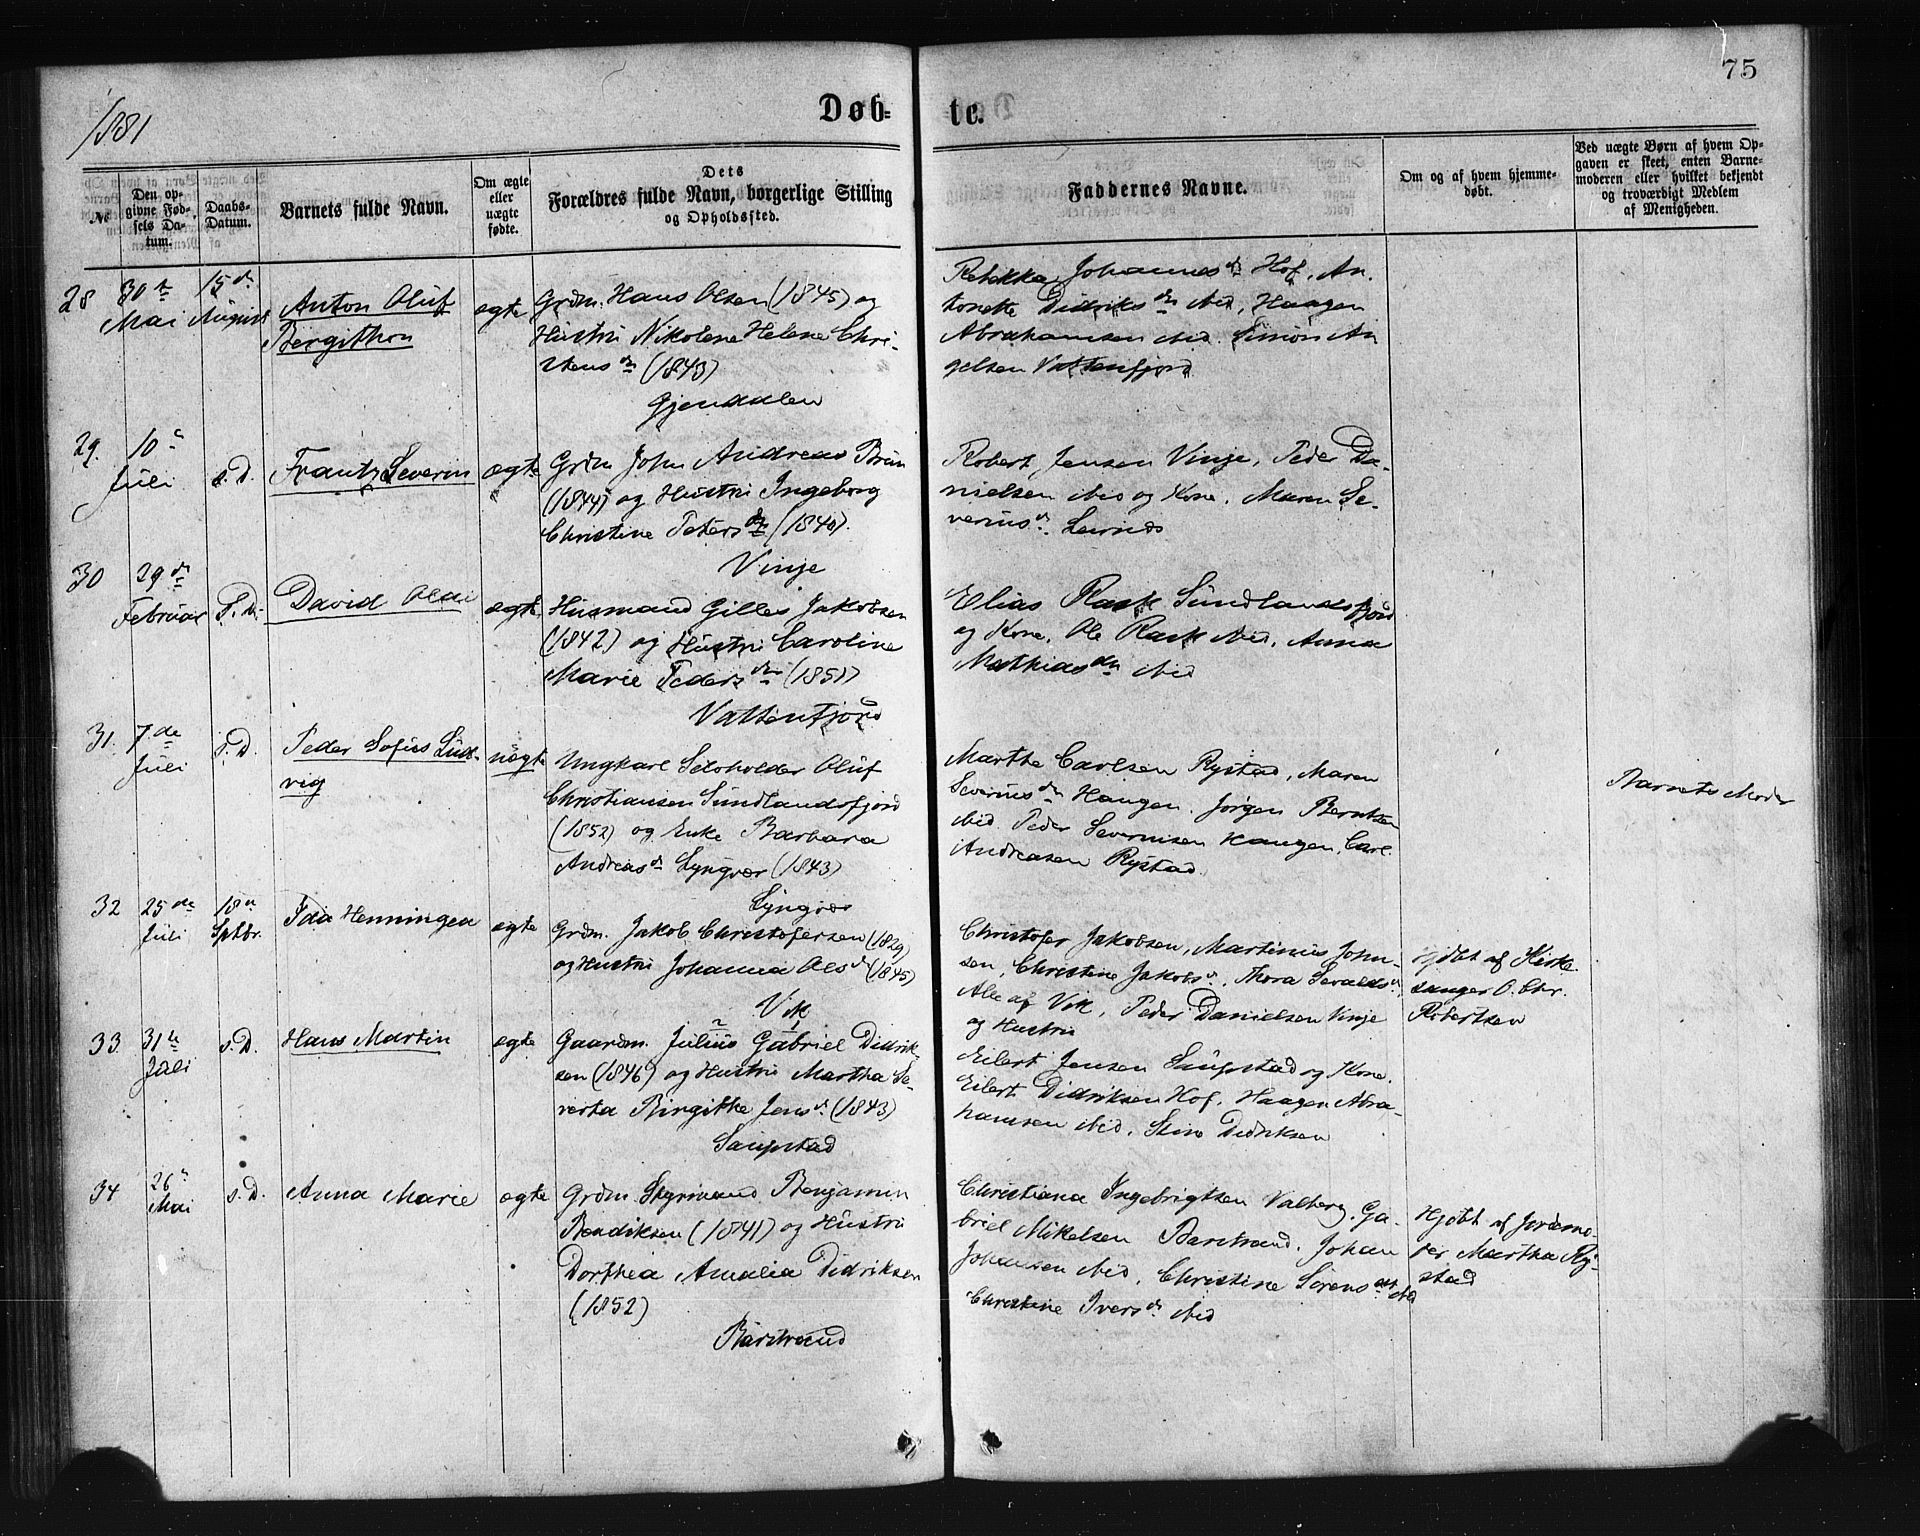 75
1881
Døb- te.
№
Den opgivne Fødsels Datum.
Daabs-Datum.
Barnets fulde Navn.
Om ægte eller uægte fødte.
Dets Forældres fulde Navn, borgerlige Stilling og Opholdssted.
Faddernes Navne.
Om og af hvem hjemmedøbt.
Ved uægte Børn af hvem Opgaven er skeet, enten Barnemoderen eller hvilket bekjendt og troværdigt Medlem af Menigheden.
28
30te Mai
15de August
Anton Oluf
Bergithon
ægte
Grdm. Hans Olsen (1845) og
Hustru Nikolene Helene Chri-
stensdr (1843)
Gjendalen
Rebekka Johannesdr Hof, An-
tonette Didriksdr ibid, Haagen
Abrahamsen ibid. Simon An
gelsen Vattenfjord
29.
10de Juli
s. D.
Frantz Severin
ægte
Grdm John Andreas Brun
(1844) og Hustru Ingeborg
Christine Petersdr (1840).
Vinje
Robert Jensen Vinje, Peder Da-
nielsen ibid og Kone, Maren Se-
verinsdr
30
29de Februar
s. D.
David Olai
ægte
Husmand Gilles Jakobsen
(1842) og Hustru Caroline
Marie Pedersdr (1851)
Vattenfjord
Elias Rask Sundlandsfjord
og Kone, Ole Rask ibid, Anna
Mathiasdr ibid
31.
7de Juli
s. D.
Peder Sofus Lud-
vig
uægte
Ungkarl Selvholder Oluf
Christiansen Sundlandsfjord
(1852) og Enke Barbara
Andreasdr Lyngvær (1843)
Lyngvær
Marthe Carlsen Rystad, Maren
Severinsdr Haugen. Jørgen Berntsen
ibid. Peder Severinsen Haugen, Carl
Andreasen Rystad.
Barnets Moder
32
25de Juli
18de Sptbr.
Ida Henningea
ægte
Grdm. Jakob Christofersen (1829)
og Hustru Johanna Olsdr (1845)
Vik
Christofer Jakobsen, Martinus John-
sen, Christine Jakobsdr, Thora Seraldsdr
Alle af Vik, Peder Danielsen Vinje
og Hustru
Hjdbt af Kirke-
sanger O. Chr.
Robertsen
33.
31te Juli
s. D.
Hans Martin
ægte
Gaardm. Julius Gabriel Didrik-
sen (1846) og Hustru Martha Se-
verta Birgitte Jensdr (1843)
Saupstad
Eilert Jensen Saupstad og Kone.
Eilert Didriksen Hof, Haagen Abra-
hamsen ibid, Stine Didriksen
34
26de Mai
s. D.
Anna Marie
ægte
Grdm. Styrmand Benjamin
Bendiksen (1841) og Hustru
Dorthea Amalia Didriksen
(1852)
Barstrand
Christiana Ingebrigtsen Valberg, Ga-
briel Mikelsen Barstrand, Johan
Johansen ibid, Christine Sørensdtr ibid
Christine Iversdr ibid
Hjdbt af Jordemo-
der Martha Ry-
stad